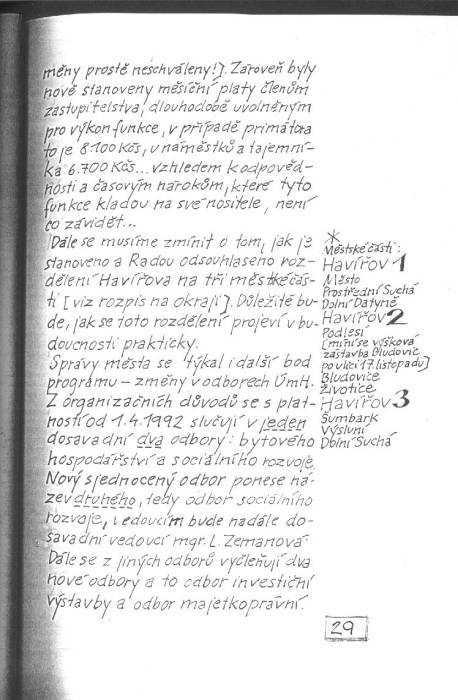 měny prostě neschváleny!]. Zároveň byly
nově stanoveny měsíční platy členům
zastupitelstva, dlouhodobě uvolněným
pro výkon funkce, v případě primátora
to je 8.100 Kčs, u náměstků a tajemní-
ka 6.700 Kčs... vzhledem k odpověd-
nosti a časovým nárokům, které tyto
funkce kladou na své nositele, není
co závidět...
Dále se musíme zmínit o tom, jak je
stanoveno a Radou odsouhlaseno roz-
dělení Havířova na tři městské čás-
ti [viz rozpis na okraji]. Důležité bu-
de, jak se toto rozdělení projeví v bu-
doucnosti prakticky.
Správy města se týkal i další bod
programu – změny v odborech ÚmH.
Z organizačních důvodů se s plat-
ností od 1.4.1992 slučují v jeden
dosavadní dva odbory: bytového
hospodářství a sociálního rozvoje.
Nový sjednocený odbor ponese ná-
zev druhého, tedy odbor sociálního
rozvoje, vedoucím bude nadále do-
savadní vedoucí mgr. L. Zemanová
Dále se z jiných odborů vyčleňují dva
nové odbory a to odbor investiční
výstavby a odbor majetkoprávní.
*
Městské části:
Havířov 1
Město
Prostřední Suchá
Dolní Datyně
Havířov 2
Podlesí
[míní se výšková
zástavba Bludovic
po ulici 17. listopadu]
Bludovice
Životice
Havířov 3
Šumbark
Výsluní
Dolní Suchá
29